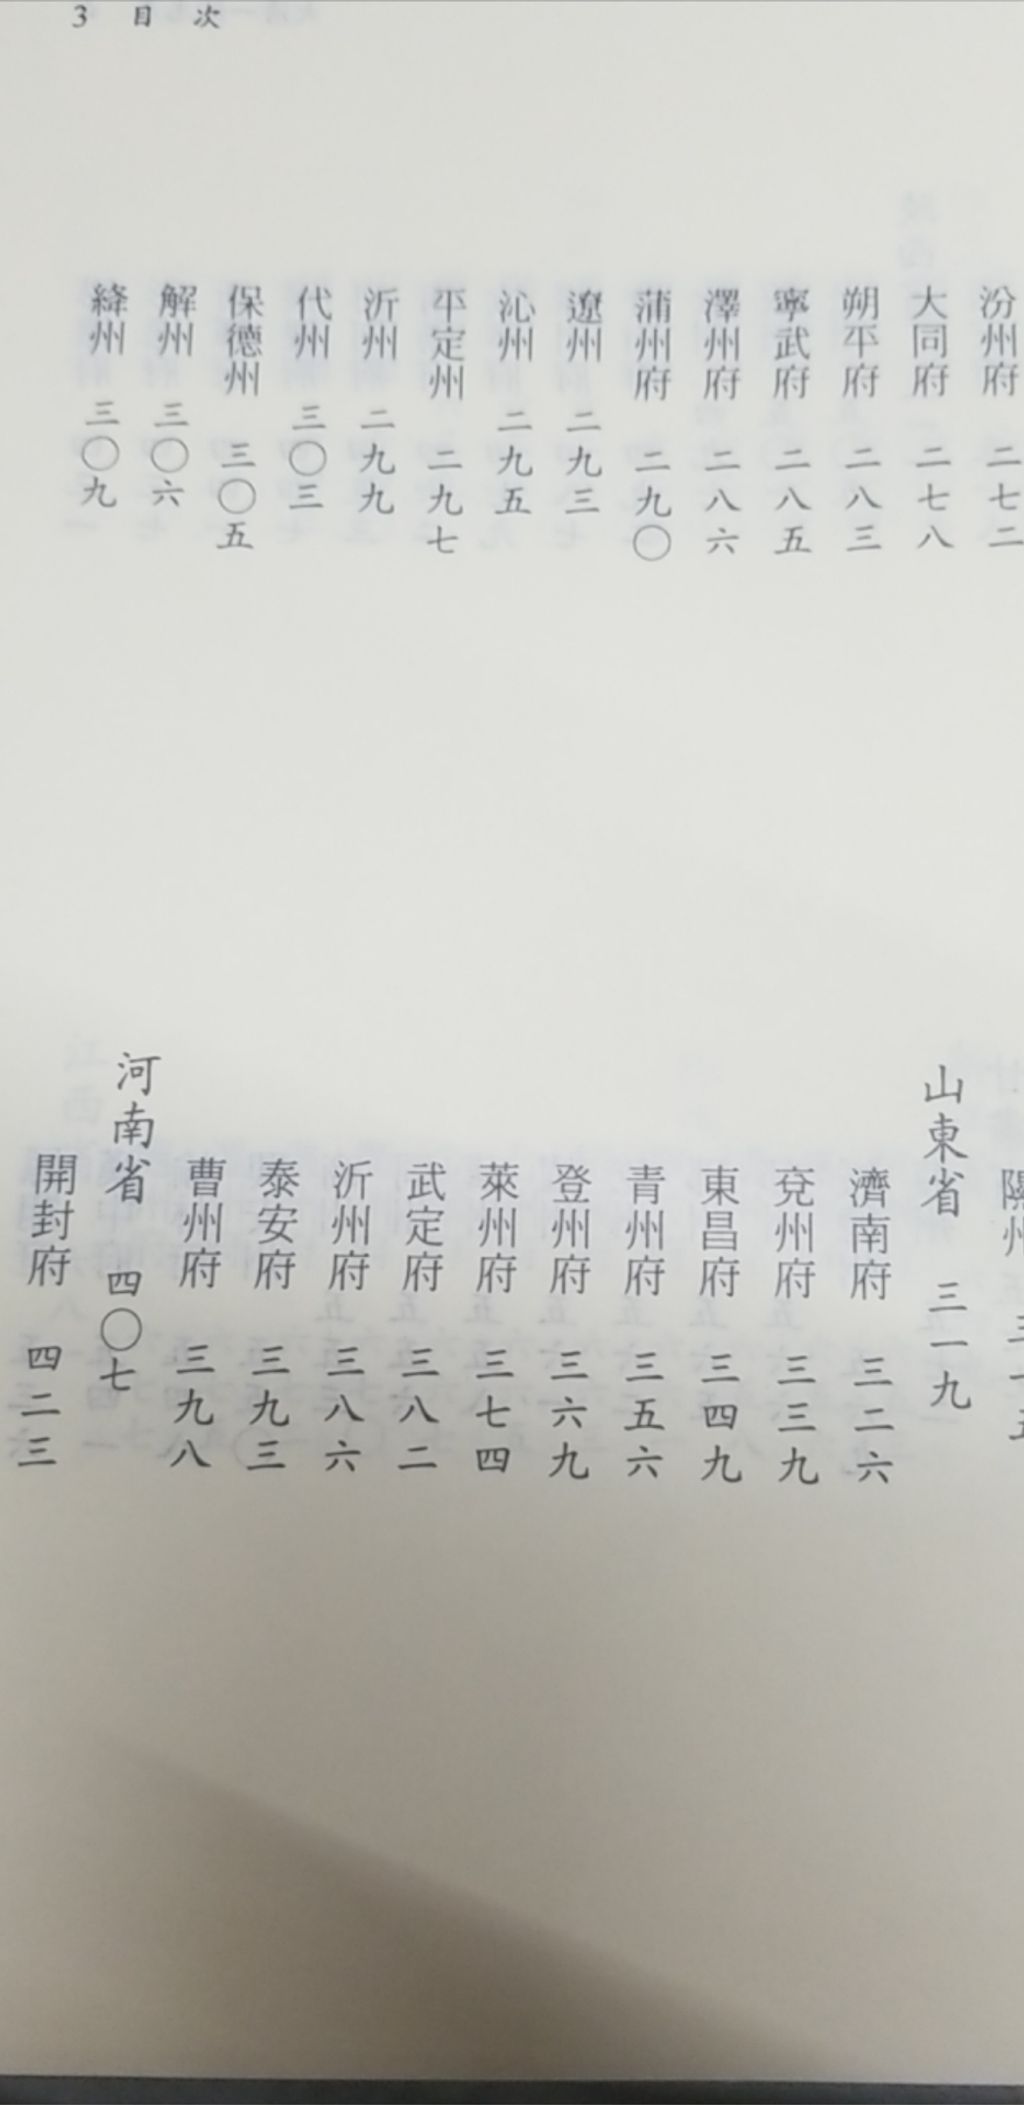 3 目次
汾州府 二七二
大同府 二七八
朔平府 二八三
寧武府 二八五
澤州府 二八六
蒲州府 二九〇
遼州 二九三
沁州 二九五
平定州 二九七
沂州 二九九
代州 三〇三
保德州 三〇五
解州 三〇六
絳州 三〇九
隰州
山東省 三一九
濟南府 三二六
兗州府 三三九
東昌府 三四九
青州府 三五六
登州府 三六九
萊州府 三七四
武定府 三八二
沂州府 三八六
泰安府 三九三
曹州府 三九八
河南省 四〇七
開封府 四二三